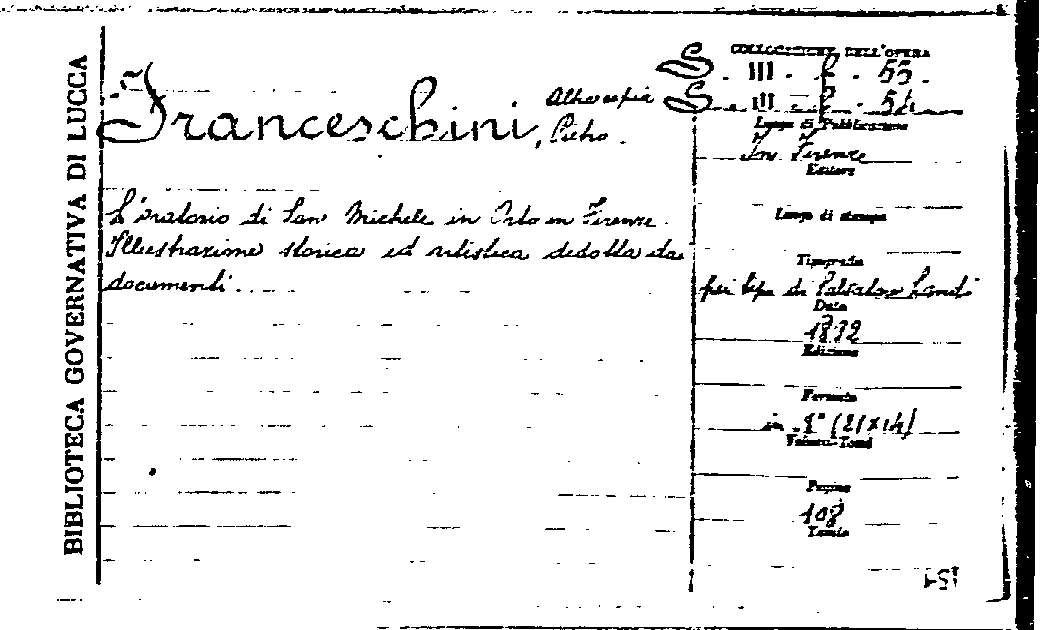 BIBLIOTECA GOVERNATIVA DI LUCCA
Franceschini, Pietro.
Altra copia
L'oratorio di San Michele in Orto in Firenze.
Illustrazione storica ed artistica dedotta da
documenti.
COLLOCAZIONE DELL'OPERA
S. III. F. 55.
S. III. F. 54
Luogo di Pubblicazione
In Firenze
Editore
Luogo di stampa
Tipografia
pei tipi di Salvadore Landi
Data
1892
Edizione
Formato
in 8° (21x14)
Volumi-Tomi
Pagine
108
Tavole